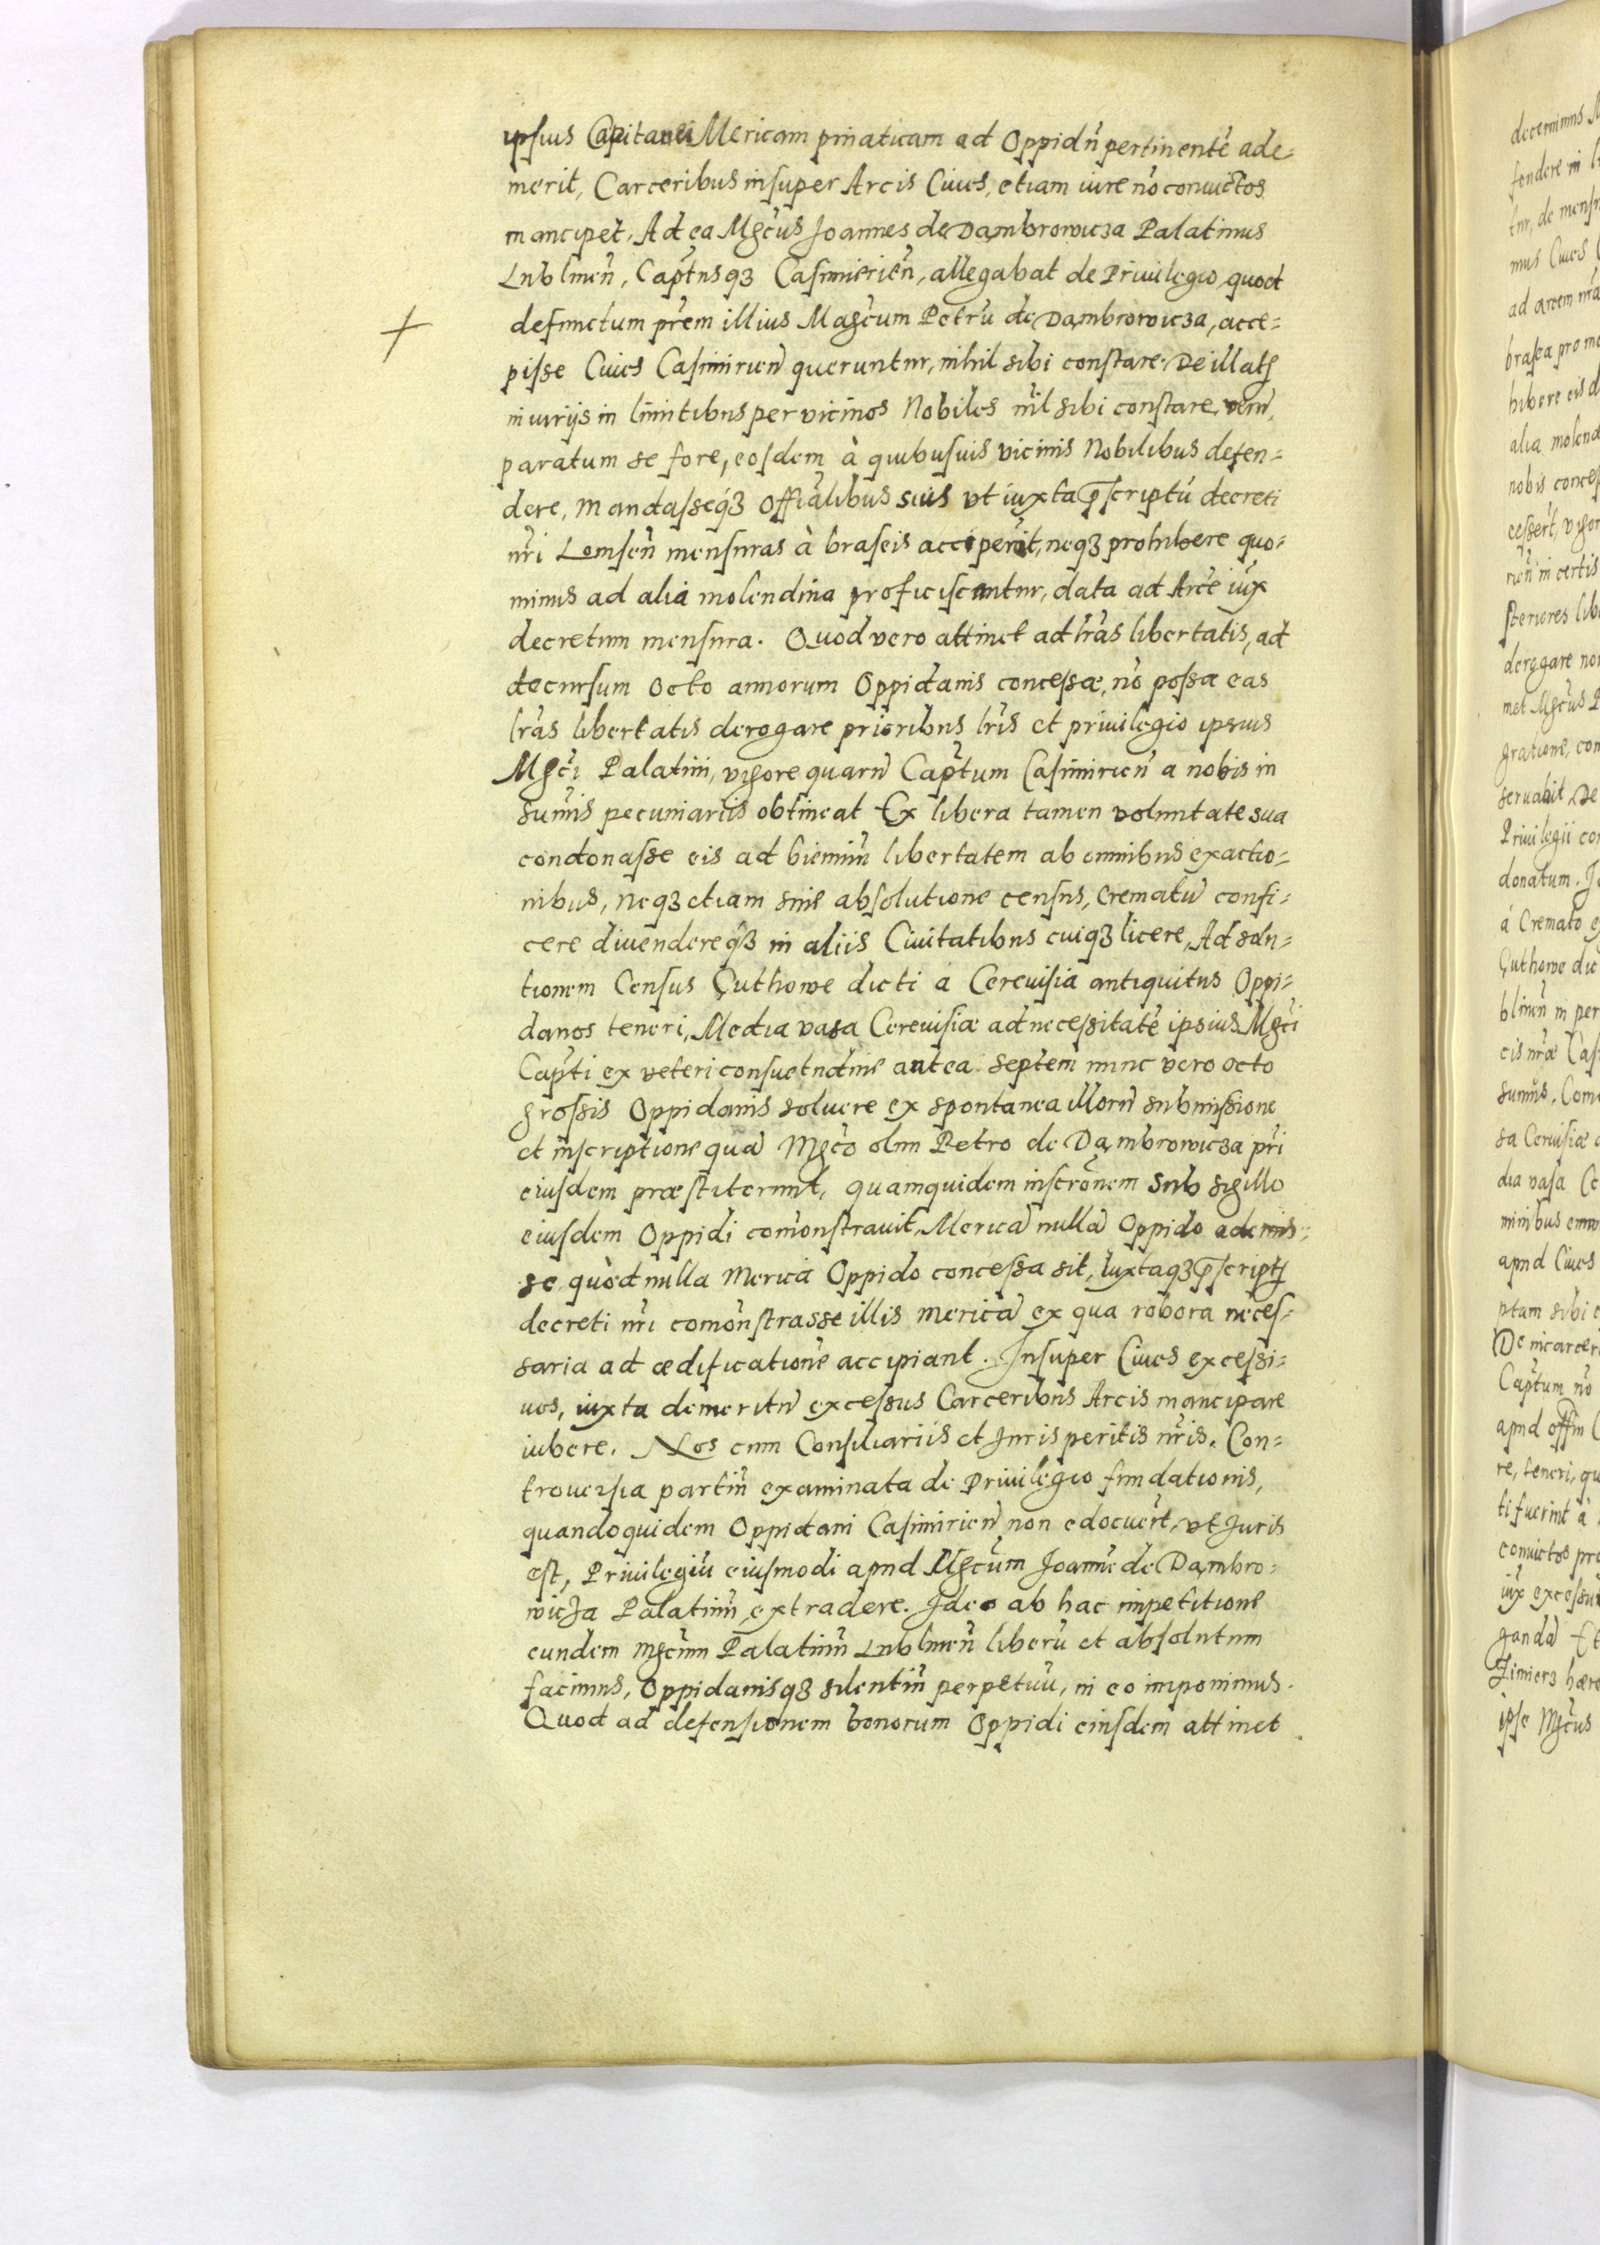 ipsius Capitanei Mericam priuaticam ad Oppidũ pertinentẽ ade-
merit, Carceribus insuper Arcis Ciues, etiam iure nõ conuictos
mancipet, Ad ea Mgcũs Joannes de Dambrowicza Palatinus
Lublineñ, Capt̃usqꝫ Casimirieñ, allegabat de Priuilegio, quod
defunctum prẽm illius Magcũm Petrũ de Dambrowicza, acce-
pisse Ciues Casimirieñ queruntur, nihil sibi constare. De illatis
iniurijs in limitibus per vicinos Nobiles nil sibi constare, verũ,
paratum se fore, eosdem à quibusuis vicinis Nobilibus defen-
dere, Mandasseqꝫ Offialibus suis vt iuxta pscriptũ decreti
nr̃i Lomseñ mensuras à braseis acciperẽt, neqꝫ prohibere quo-
minus ad alia molendina proficiscantur, data ad Arcẽ iux̃
decretum mensura. Quod vero attinet ad lr̃as libertatis, ad
decursum Octo annorum Oppidanis concessæ, nõ possæ eas
lr̃as libertatis derogare prioribus lr̃is et priuilegio ipsius
Mgci Palatini, vigore quarũ Capt̃um Casimirieñ a nobis in
sum̃is pecuniariis obtineat Ex libera tamen voluntate sua
condonasse eis ad bienniũ libertatem ab omnibus exactio-
nibus, neqꝫ etiam sine absolutione census, Crematũ confi-
cere diuendereqꝫ in aliis Ciuitatibus cuiqꝫ licere, Ad solu-
tionem Census Guthowe dicti à Cereuisia antiquitus Oppi-
danos teneri, Media vasa Cereuisiæ ad necessitatẽ ipsius Mgci
Capt̃i ex veteri consuetudine antea septem nunc vero octo
grossis Oppidanis soluere ex spontanea illorũ submissione
et inscriptione quã Mgcõ olim Petro de Dambrowicza pr̃i
eiusdem præstiterunt, quamquidem inscrõnem Sub sigillo
eiusdem Oppidi comonstrauit, Mericã nullã Oppido ademis-
se quòd nulla Merica Oppido concessa sit, Iuxtaqꝫ pscriptũ
decreti nr̃i comonstrasse illis mericã ex qua robora neces-
saria ad ædificationẽ accipiant. Insuper Ciues excessi-
uos, iuxta demeritũ excessus Carceribus Arcis mancipare
iubere. Nos cum Consiliariis et Juris peritis nr̃is. Con-
trouersia partiũ examinata de Priuilegio fundationis,
quandoquidem Oppidani Casimirieñ non edocuer̃t, vt Juris
est, Priuilegiũ eiusmodi apud Mgcũm Joannẽ de Dambro-
wicza Palatinũ extradere. Ideo ab hac impetitione
eundem Mgcum Palatinũ Lublineñ liberũ et absolutum
facimus, Oppidanisqꝫ silentiũ perpetuũ, in eo imponimus.
Quod ad defensionem bonorum Oppidi eiusdem attinet